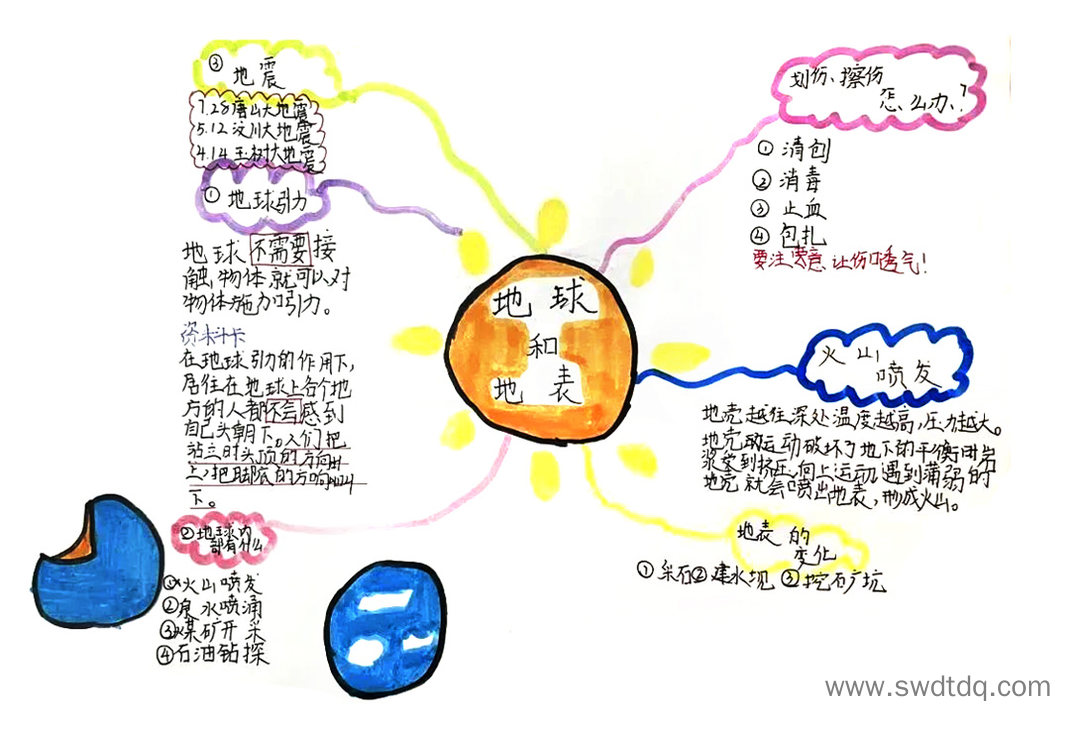 地球
和
地表
③ 地震
7.28唐山大地震
5.12汶川大地震
4.14玉树大地震
① 地球引力
地球不需要接
触物体就可以对
物体施加引力。
资料卡
在地球引力的作用下,
居住在地球上各个地
方的人都不会感到
自己头朝下。人们把
站立时头顶的方向叫
上,把脚底的方向叫
下。
②地球内
部有什么
①火山喷发
②泉水喷涌
③煤矿开采
④石油钻探
划伤、擦伤
怎么办?
① 清创
② 消毒
③ 止血
④ 包扎
要注意 让伤口透气!
火山
喷发
地壳越往深处温度越高,压力越大。
地壳的运动破坏了地下的平衡时岩
浆受到挤压向上运动,遇到薄弱的
地壳就会喷出地表,形成火山。
地表的
变化
①采石②建水坝 ③挖石矿坑
www.swdtdq.com